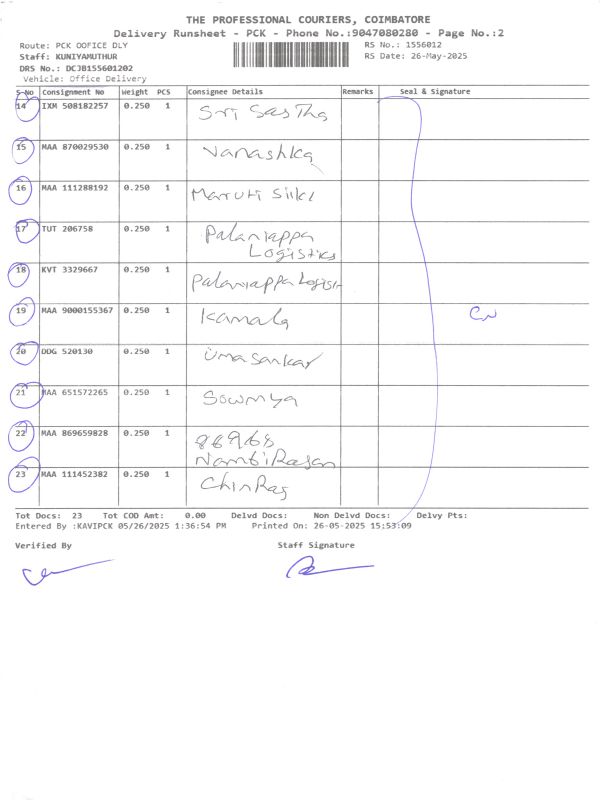 THE PROFESSIONAL COURIERS, COIMBATORE
Delivery Runsheet - PCK - Phone No.:9047080280 - Page No.:2
Route: PCK OOFICE DLY RS No.: 1556012
Staff: KUNIYAMUTHUR RS Date: 26-May-2025
DRS No.: DCJB155601202
Vehicle: Office Delivery
S No Consignment No Weight PCS Consignee Details Remarks Seal & Signature
14 IXM 508182257 0.250 1 Sri Sastha
15 MAA 870029530 0.250 1 Vanashka
16 MAA 111288192 0.250 1 Maruti Silks
17 TUT 206758 0.250 1 Palaniappa
Logistics
18 KVT 3329667 0.250 1 Palaniappa Logisti
19 MAA 9000155367 0.250 1 Kamala
20 DDG 520130 0.250 1 Uma Sankar
21 MAA 651572265 0.250 1 Sowmya
22 MAA 869659828 0.250 1
Nambi Rajan
23 MAA 111452382 0.250 1 Chin Raj
Tot Docs: 23 Tot COD Amt: 0.00 Delvd Docs: Non Delvd Docs: Delvy Pts:
Entered By :KAVIPCK 05/26/2025 1:36:54 PM Printed On: 26-05-2025 15:53:09
Verified By Staff Signature